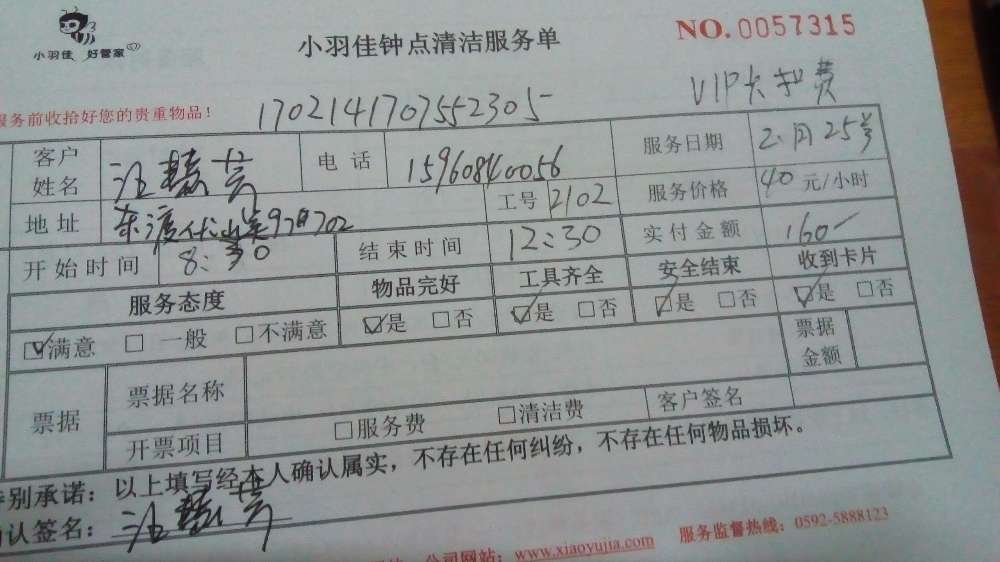 小羽佳 好管家
小羽佳钟点清洁服务单
NO. 0057315
服务前收拾好您的贵重物品!
1702141707552305
VIP卡扣费
客户姓名 汪慧芸 电话 15960840056 服务日期 2月25号
地址 东渡 97 702 工号 2102 服务价格 40元/小时
开始时间 8:30 结束时间 12:30 实付金额 160
服务态度 物品完好 工具齐全 安全结束 收到卡片
☑满意 □一般 □不满意 ☑是 □否 ☑是 □否 ☑是 □否 ☑是 □否
票据 票据名称 票据金额
开票项目 □服务费 □清洁费 客户签名
特别承诺:以上填写经本人确认属实,不存在任何纠纷,不存在任何物品损坏。
确认签名:汪慧芸
公司网站:www.xiaoyujia.com 服务监督热线:0592-5888123